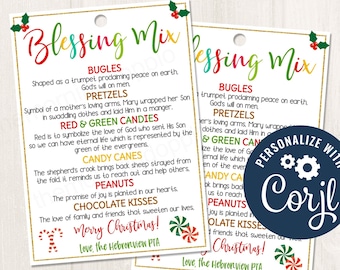 Blessing Mix
BUGLES
Shaped as a trumpet proclaiming peace on earth,
God's will on men.
PRETZELS
Symbol of a mother's loving arms. Mary wrapped her Son
in swaddling clothes and laid Him in a manger.
RED & GREEN CANDIES
Red is to symbolize the love of God who sent His Son
so we can have eternal life which is represented by the
green of the evergreens.
CANDY CANES
The shepherd's crook brings back sheep strayed from
the fold, it reminds us to reach out, and help others.
PEANUTS
The promise of joy is planted in our hearts.
CHOCOLATE KISSES
The love of family and friends that sweeten our lives.
Merry Christmas!
Love, the Hebronview PTA
Blessing Mix
BUGLES
PRETZELS
RED & GREEN
PERSONALIZE WITH
Corjl